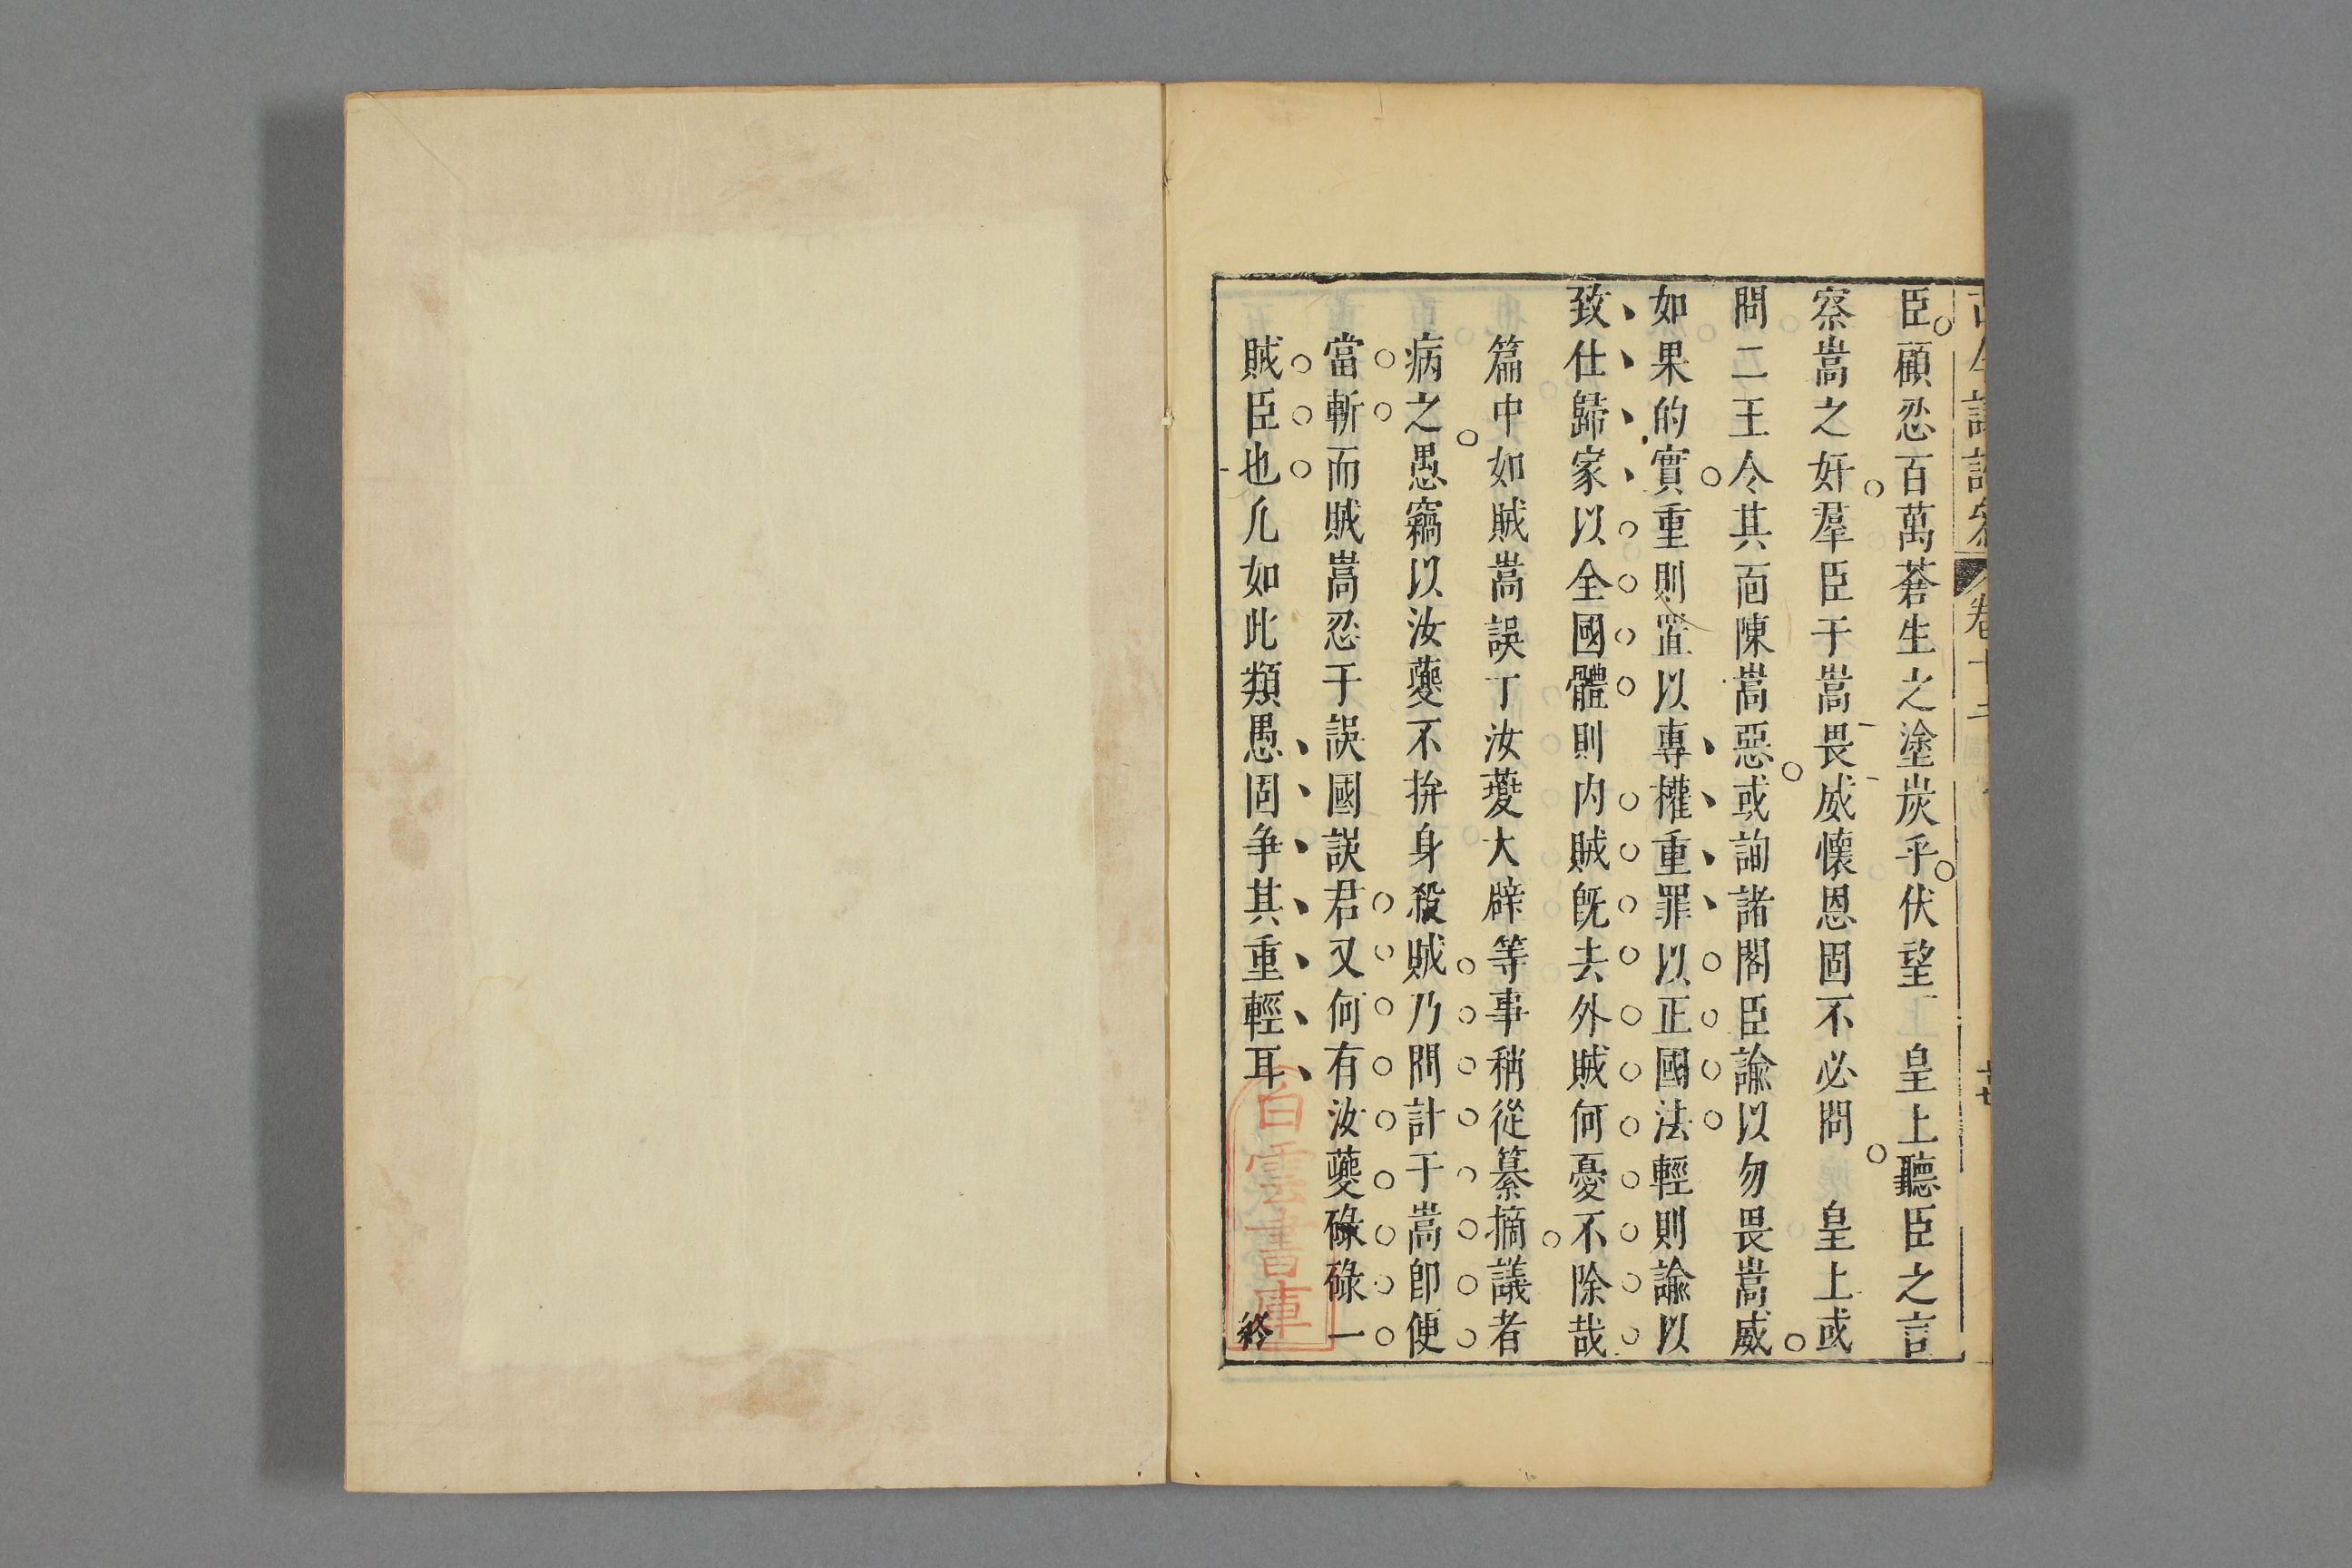 臣顧忍百萬蒼生之塗炭乎伏望 皇上聽臣之言
察嵩之奸羣臣于嵩畏威懷恩固不必問 皇上或
問二王令其面陳嵩惡或詢諸閣臣諭以勿畏嵩威
如果的實重則置以專權重罪以正國法輕則諭以
致仕歸家以全國體則内賊旣去外賊何憂不除哉
篇中如賊嵩誤丁汝䕫大辟等事稍從纂摘議者
病之愚竊以汝夔不拚身殺賊乃問計于嵩卽便
當斬而賊嵩忍于誤國誤君又何有汝夔碌碌一
賊臣也凡如此類愚固争其重輕耳
終
白雲書庫
卷十二
廿七